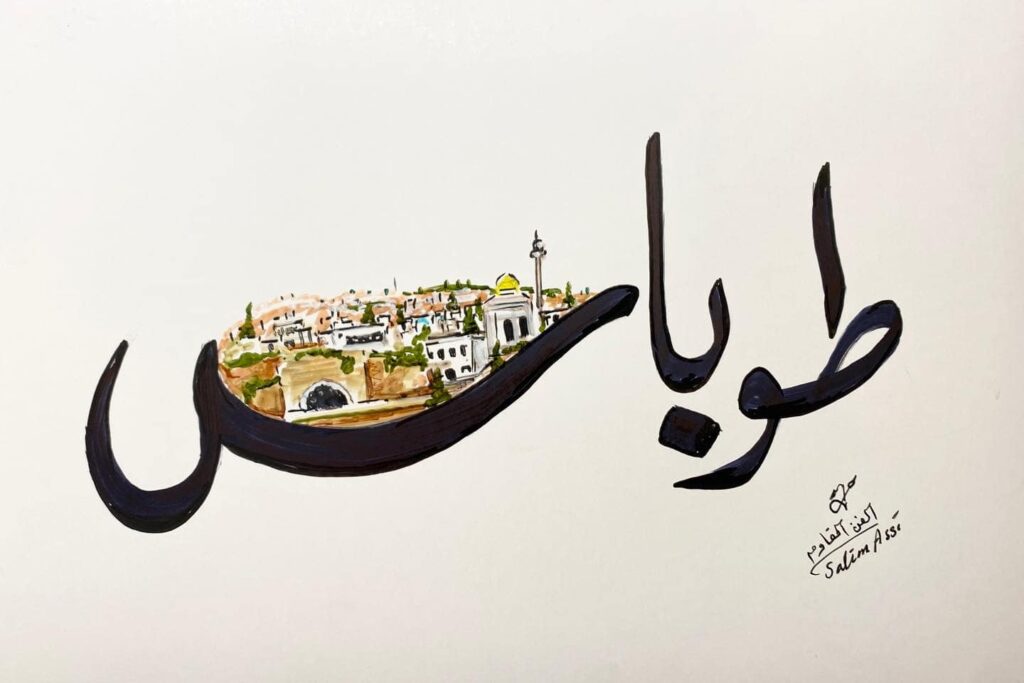 طوباس
الفن المقاوم
Salim Assi